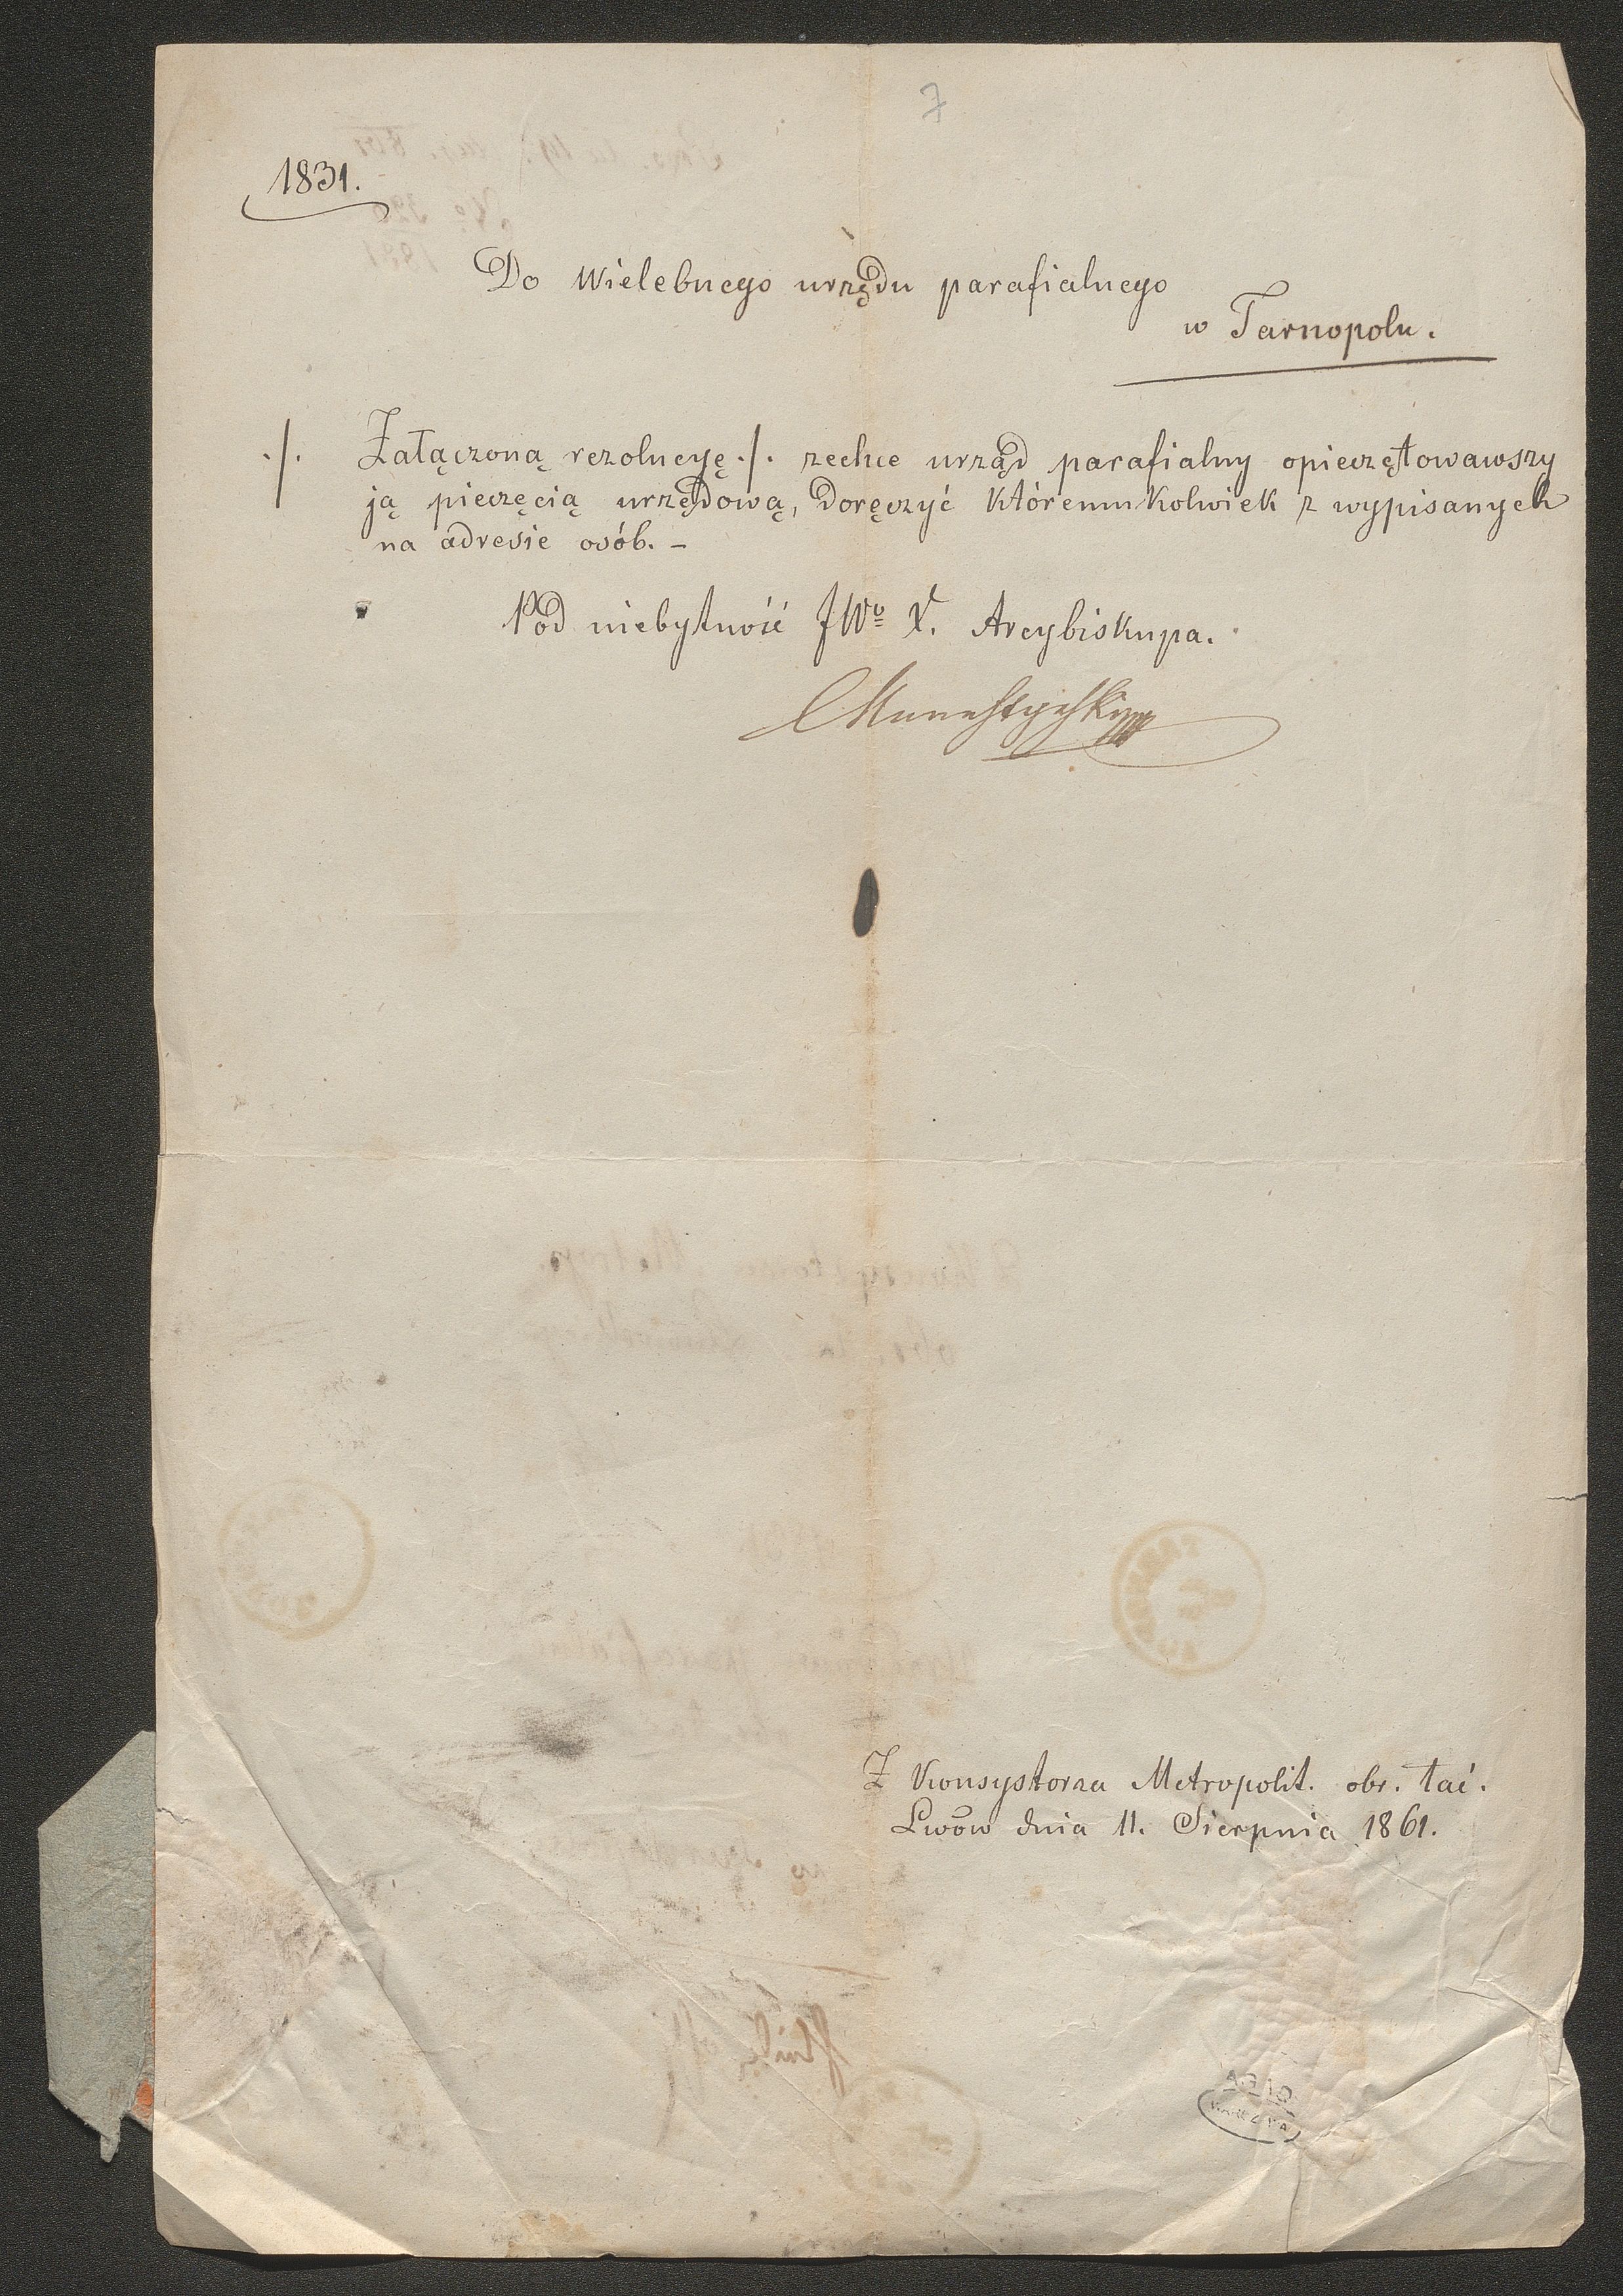 7
1831.
Do Wielebnego urzędu parafialnego
w Tarnopolu.
./. Załączoną rezolucyę ./. zechce urząd parafialny opieczętowawszy
ją pieczęcią urzędową, doręczyć któremukolwiek z wypisanych
na adresie osób. -
Pod niebytność JWo X. Arcybiskupa.
Z Konsystorza Metropolit. obr. łać.
Lwów dnia 11. Sierpnia 1861.
A.G.A.D.
WARSZAWA